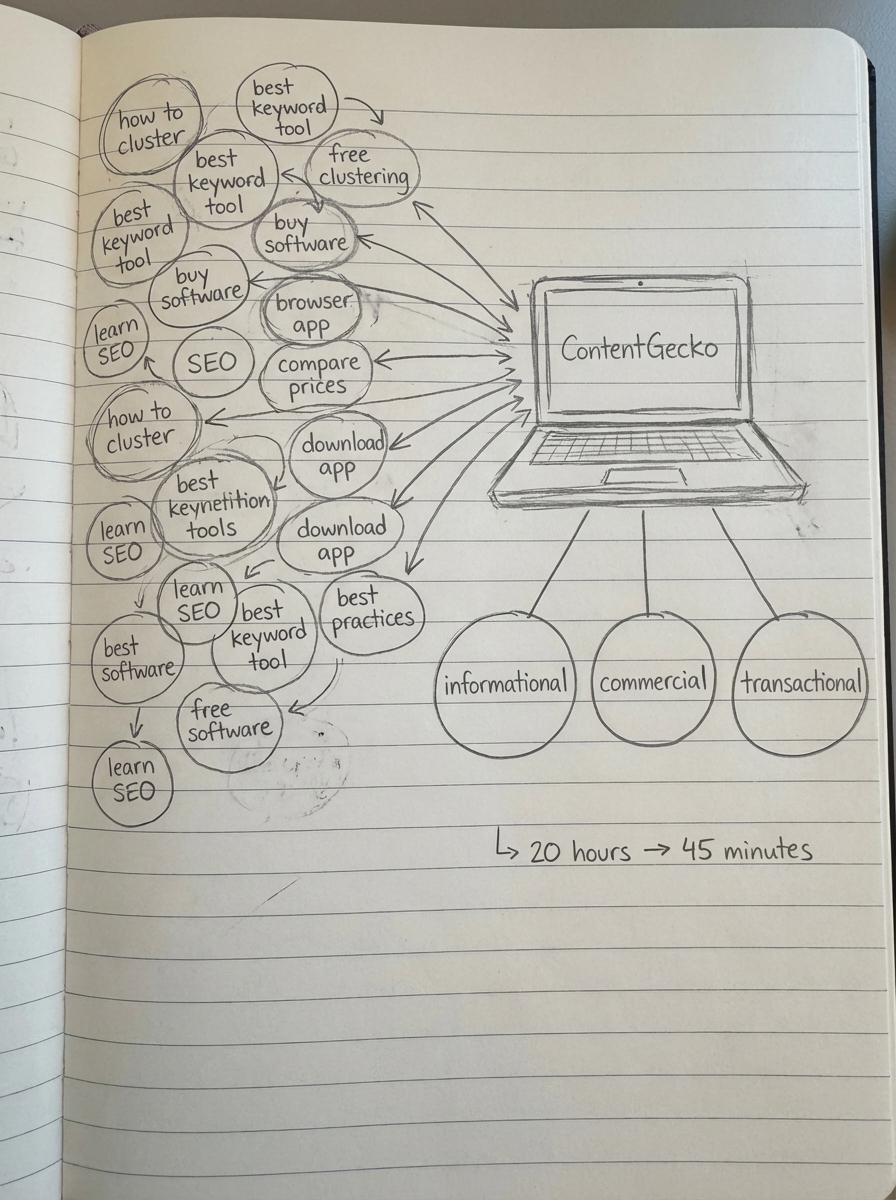 best
keyword
tool
how to
cluster
free
clustering
best
keyword
tool
best
keyword
tool
buy
software
buy
software
browser
app
learn
SEO
SEO
compare
prices
ContentGecko
how to
cluster
download
app
best
keynetition
tools
learn
SEO
download
app
learn
SEO
best
keyword
tool
best
practices
best
software
free
software
learn
SEO
informational
commercial
transactional
↳ 20 hours → 45 minutes